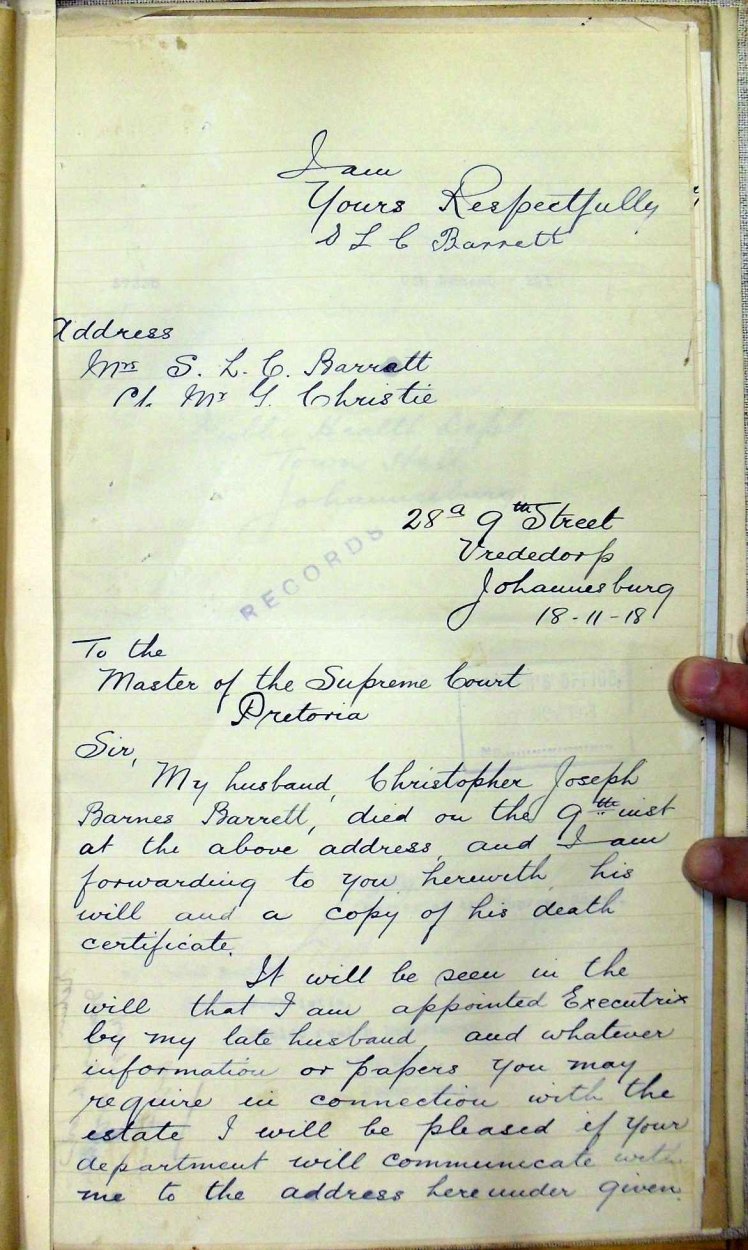 I am
Yours Respectfully
S L C Barrett
Address
Mrs S. L. C. Barratt
C/. Mr G. Christie
Public Health Dept
Town Hall
Johannesburg
28a 9th Street
Vrededorp
Johannesburg
18-11-18
RECORDS
To the
Master of the Supreme Court
Pretoria
Sir,
My husband, Christopher Joseph
Barnes Barrett, died on the 9th inst
at the above address, and I am
forwarding to you herewith, his
will and a copy of his death
certificate.
It will be seen in the
will that I am appointed Executrix
by my late husband, and whatever
information or papers you may
require in connection with the
estate I will be pleased if your
department will communicate with
me to the address hereunder given.